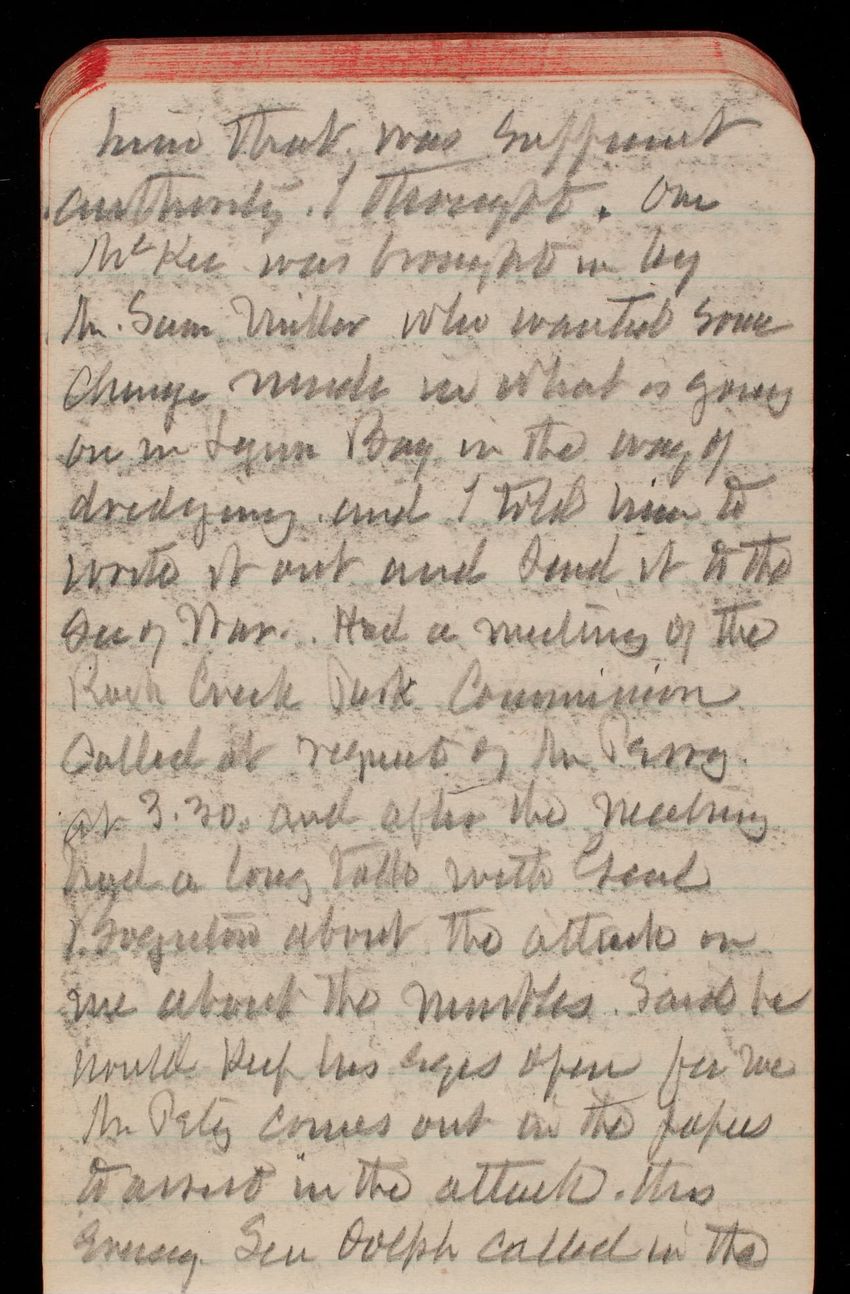 him that was sufficient
authority. I thought. One
McKee was brought in by
Mr. Sam Miller who wanted some
change made in what is going
on in Bay in the way of
dredging and I told him to
write it out and send it to the
Sec of War. Had a meeting of the
Rock Creek Park Commission
Called at request of Mr Perry
at 3.30. and after the meeting
had a long talk with
about the attack on
me about the marbles. Said he
would keep his eyes open for me
Mr Petty comes out in the papers
to assist in the attack. this
Evening Sen Dolph called in the